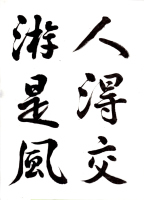 人得交
游是風